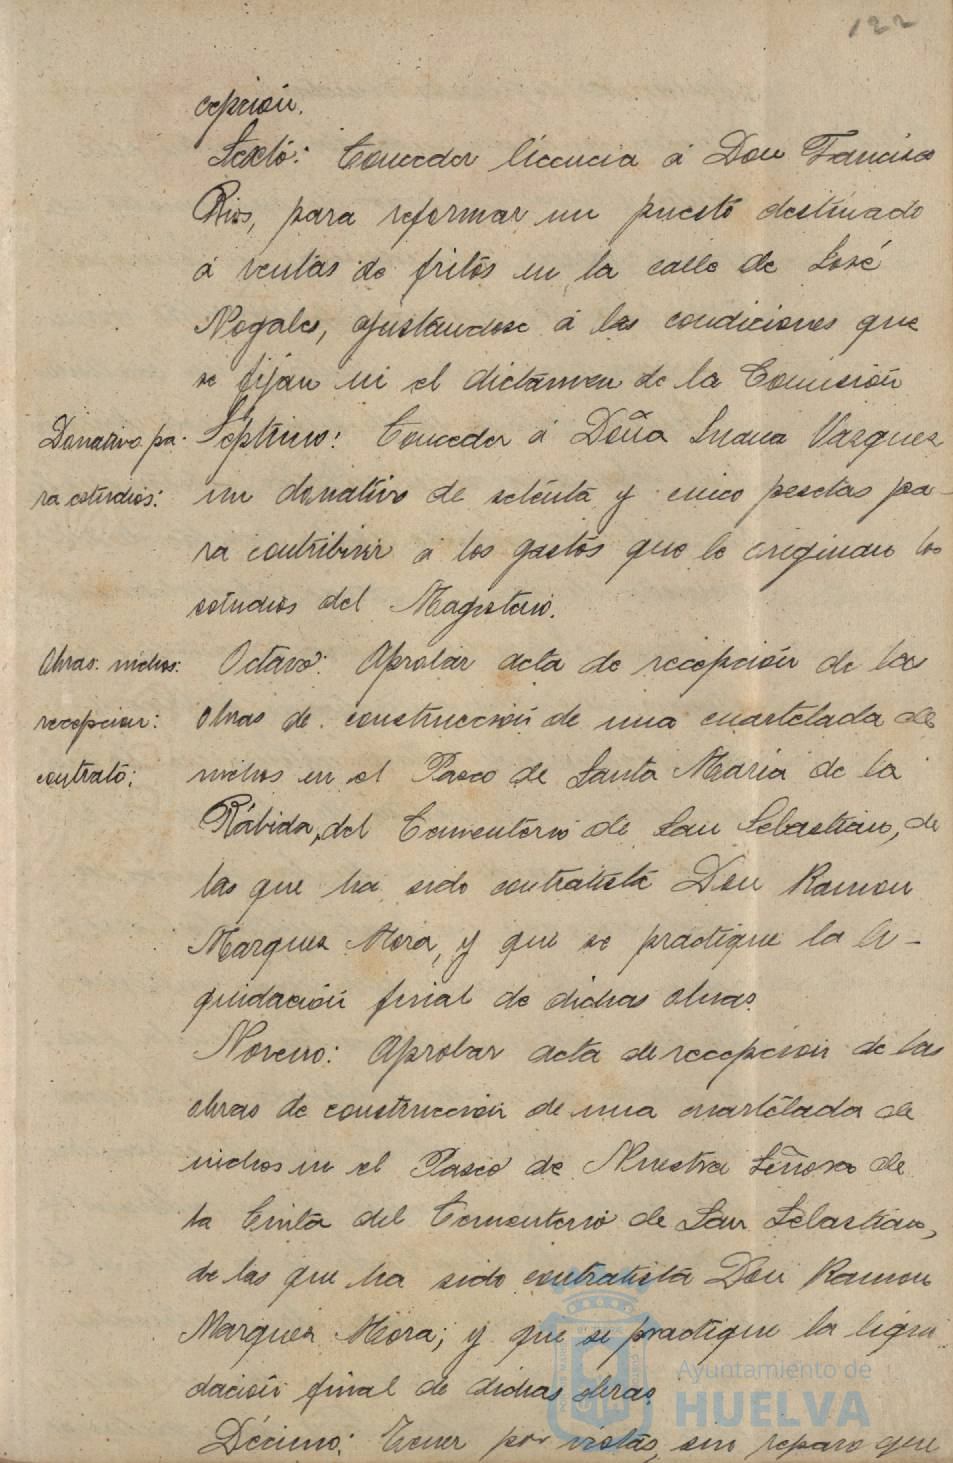 122
cepción.
Sexto: Conceder licencia á Don Francisco
Rios, para reformar un puesto destinado
á ventas de fritos en la calle de José
Nogales, ajustandose á las condiciones que
se fijan en el dictámen de la Comisión
Donativo pa-
ra estudios:
Septimo: Conceder á Doña Juana Vazquez
un donativo de setenta y cinco pesetas pa-
ra contribuir á los gastos que le originan los
estudios del Magisterio.
Obras: nichos:
recepcion:
contrato:
Octavo: Aprobar acta de recepción de las
obras de construcción de una cuartelada de
nichos en el Paseo de Santa Maria de la
Rábida, del Cementerio de San Sebastian, de
las que ha sido contratista Don Ramon
Marquez Mora, y que se practique la li-
quidación final de dichas obras.
Noveno: Aprobar acta de recepción de las
obras de construcción de una cuartelada de
nichos en el Paseo de Nuestra Señora de
la Cinta del Cementerio de San Sebastian,
de las que ha sido contratista Don Ramon
Marquez Mora; y que se practique la liqui
dación final de dichas obras.
Décimo: Tener por vistas, sin reparo que
Ayuntamiento de
HUELVA